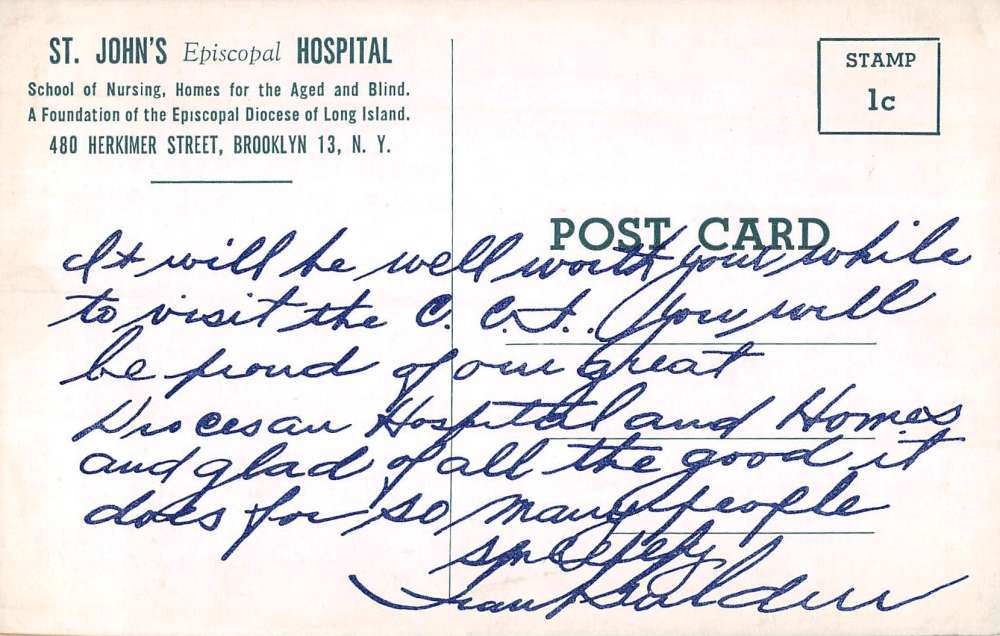 ST. JOHN'S Episcopal HOSPITAL
School of Nursing, Homes for the Aged and Blind.
A Foundation of the Episcopal Diocese of Long Island.
480 HERKIMER STREET, BROOKLYN 13, N. Y.
STAMP
1c
POST CARD
It will be well worth your while
to visit the C. C. I. . You will
be proud of our great
Diocesan Hospital and Homes
and glad of all the good it
does for so many people
Sincerely